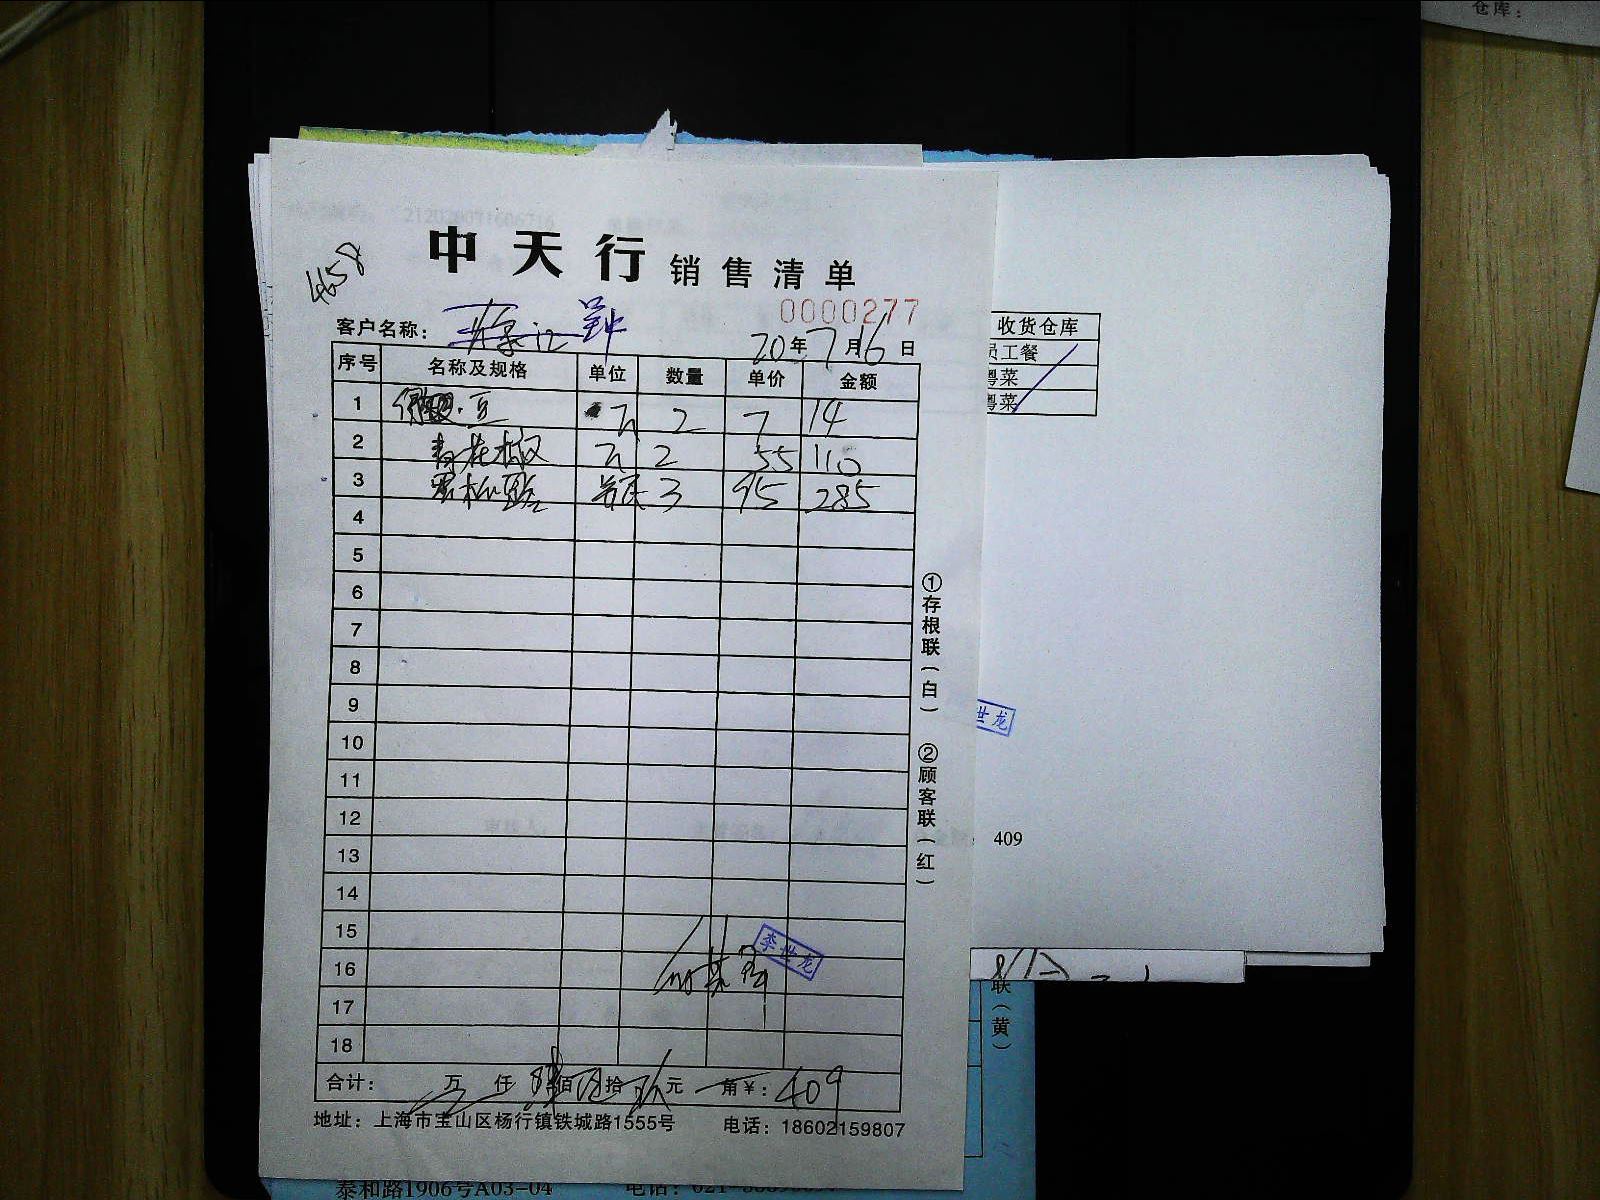 仓库：
4658
中天行 销售清单
0000277
客户名称：
20年7月16日
序号 名称及规格 单位 数量 单价 金额
1 2 7 14
2 青花椒 2 55 110
3 3 95 285
4
5
6
7
8
9
10
11
12
13
14
15
16
17
18
李世龙
合计： 万 仟 肆佰 零拾 玖元 角 ¥：409
地址：上海市宝山区杨行镇铁城路1555号 电话：18602159807
①存根联（白） ②顾客联（红）
收货仓库
员工餐
粤菜
粤菜
世龙
409
联（黄）
泰和路1906号A03-04